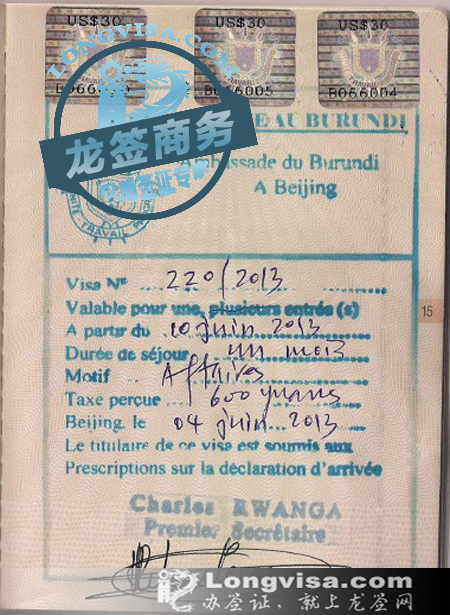 US$30 US$30 US$30
B066005 B066004
LONGVISA.COM
龙签商务
AU BURUNDI
Ambassade du Burundi
A Beijing
TRAVAIL
Visa N° 220/2013
Valable pour une, plusieurs entrée (s)
A partir du 10 juin 2013
Durée de séjour un mois
Motif Affaires
Taxe perçue 600 yuans
Beijing, le 04 juin 2013
Le titulaire de ce visa est soumis aux
Prescriptions sur la déclaration d'arrivée
15
Charles RWANGA
Premier Secrétaire
Longvisa.com
办签证,就上龙签网